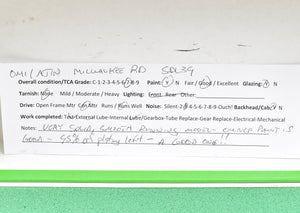 OMI/ATIN MILWAUKEE RD SDL39
Overall condition/TCA Grade: C-1-2-3-4-5-6-7-8-9-10 Paint: Y / N Fair / Good / Excellent Glazing: Y N
Tarnish: None / Mild / Moderate / Heavy Lighting: Front Rear Other
Drive: Open Frame Mtr Can Mtr Runs / Runs Well Noise: Silent-2-3-4-5-6-7-8-9-Ouch! Backhead/Cab: Y N
Work completed: Test-External Lube-Internal Lube/Gearbox-Tube Replace-Gear Replace-Electrical-Mechanical
Notes: VERY SOLID, SMOOTH RUNNING MODEL - OWNER PAINT IS
GOOD - 95% of plating left - A GOOD ONE!!